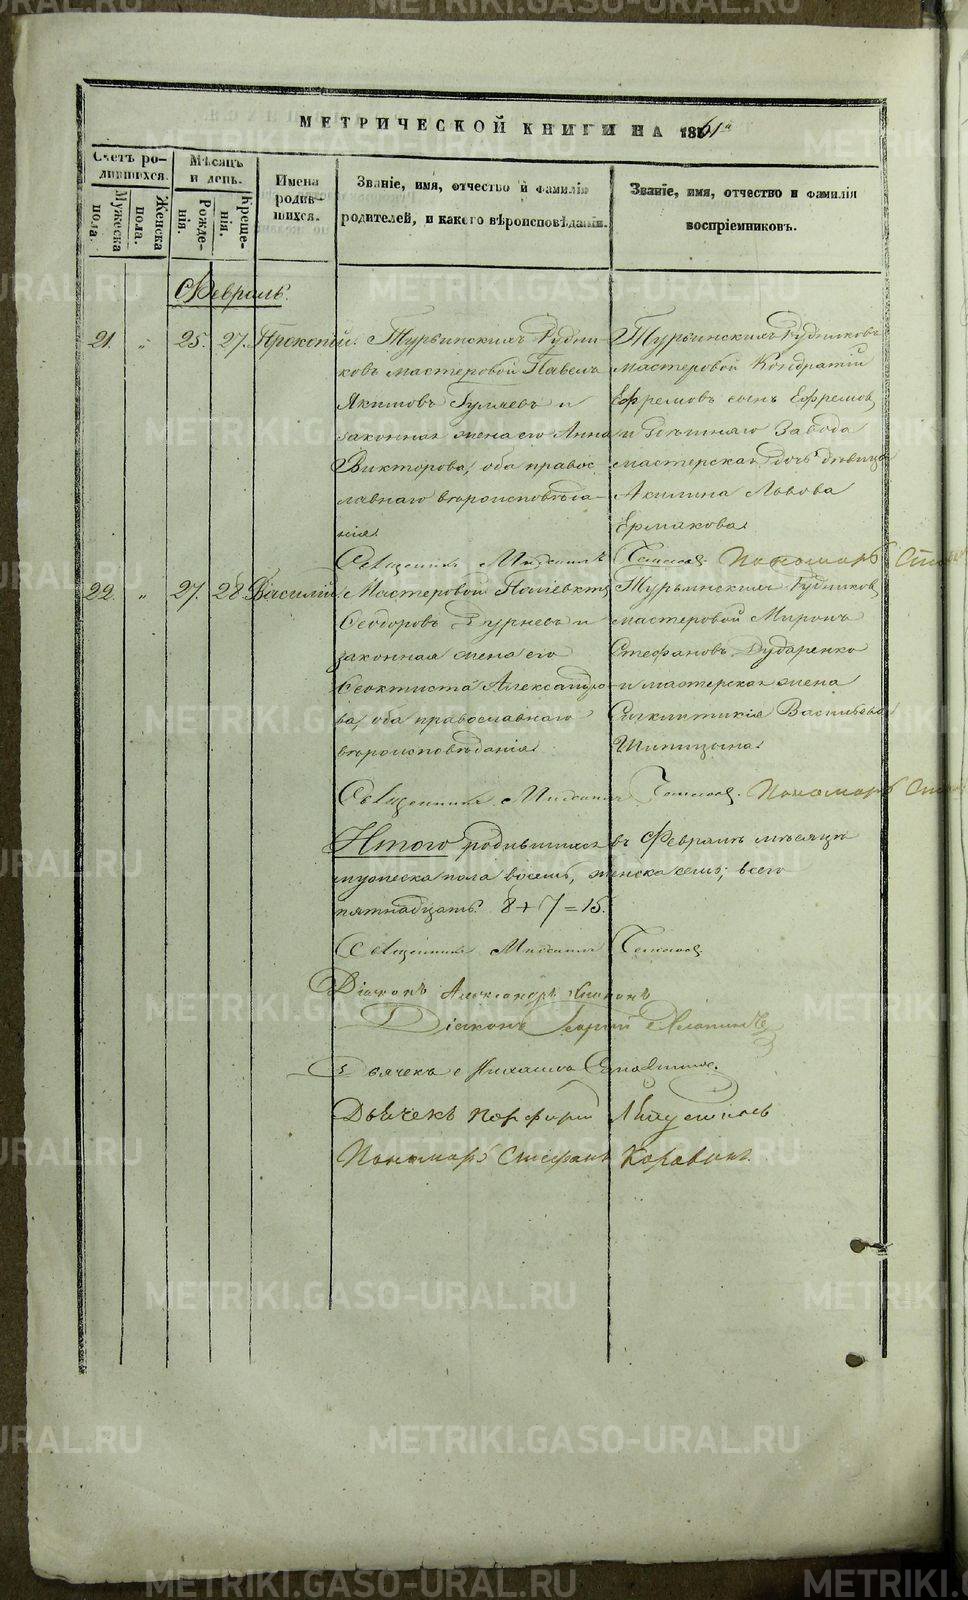 МЕТРИЧЕСКОЙ КНИГИ НА 1861й
Счетъ родившихся.
Мужеска пола.
Женска пола.
Мѣсяцъ и день.
Рожденія.
Крещенія.
Имена родившихся.
Званіе, имя, отчество и фамилія родителей, и какого вѣроисповѣданія.
Званіе, имя, отчество и фамилія воспріемниковъ.
Февраль.
21. " 25. 27. Прокопій.
Турьинскихъ Рудни-
ковъ мастеровой Павелъ
Акимовъ Гуляевъ и
законная жена его Анна
Викторова, оба правос-
лавнаго вѣроисповѣда-
нія.
Турьинскихъ Рудниковъ
мастеровой Кондратій
Ефремовъ сынъ Ефремовъ
и Завода
мастерская дочь дѣвица
Акилина Львова
Ермакова.
Священникъ Михаилъ Пономарь
22. " 27. 28. Василій.
Мастеровой Полиевктъ
Феодоровъ и
законная жена его
Феоктиста Александро-
ва, оба православнаго
вѣроисповѣданія.
Турьинскихъ Рудниковъ
мастеровой Миронъ
Стефановъ Дударенко
и мастерская жена
Синклитикія Васильева
Шипицына.
Священникъ Михаилъ Пономарь
Итого родившихся въ Февралѣ мѣсяцѣ
мужеска пола восемь, женска семь; всего
пятнадцать. 8+7=15.
Священникъ Михаилъ
Діаконъ Александръ
Діаконъ Георгій
Дьячекъ
Дьячекъ Порфирій
Пономарь Стефанъ Коровинъ.
METRIKI.GASO-URAL.RU